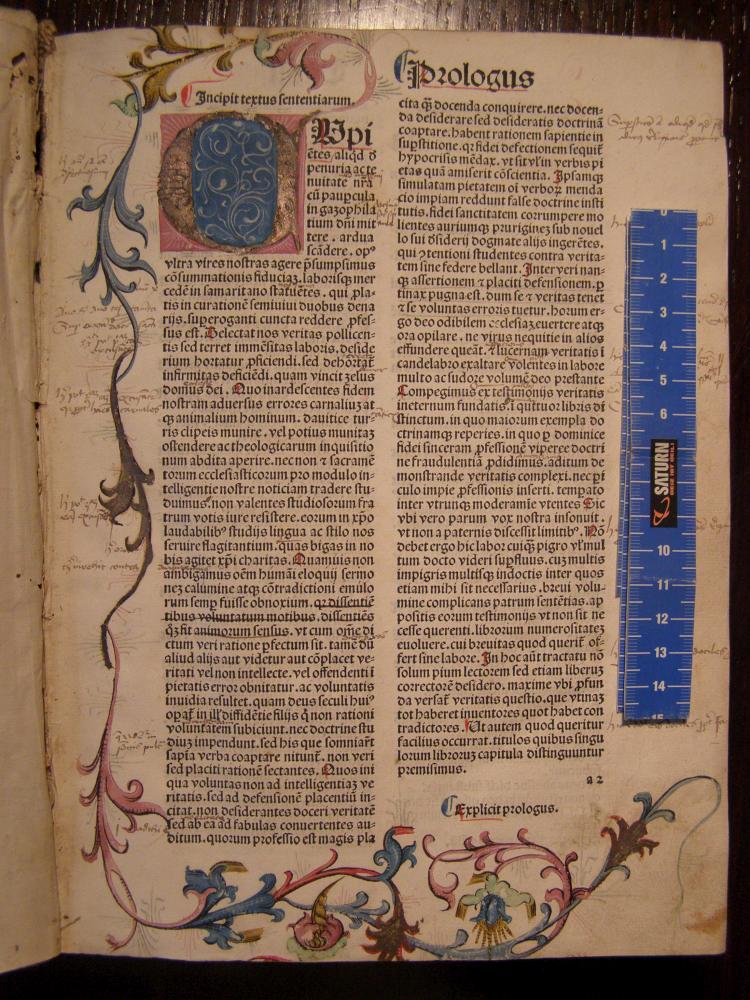 Prologus
Incipit textus sententiarum.
Cupi
ētes aliqd d
penuria ac te
nuitate nr̄a
cū paupcula
in gazophila
tium dn̄i mit
tere. ardua
scādere. opꝰ
vltra vires nostras agere p̄sumpsimus
cōsummationis fiduciaꝫ. laborisqꝫ mer
cedē in samaritano statuētes. qui ꝓla⸗
tis in curationē semiuiui duobus dena
rijs. supeꝛoganti cuncta reddere ꝓfes⸗
sus est. Delectat nos veritas pollicen⸗
tis sed terret immēsitas laboris. deside
rium hortatur ꝓficiendi. sed dehortat̄
infirmitas deficiēdi. quam vincit zelus
domus dei. Quo inardescentes fidem
nostram aduersus errores carnaliuꝫ at
qꝫ animalium hominum. dauitice tur⸗
ris clipeis munire. vel potius munitaꝫ
ostendere ac theologicarum inquisitio
num abdita aperire. nec non ⁊ sacramē
torum ecclesiasticorum pro modulo in⸗
telligentie nostre noticiam tradere stu⸗
duimus. non valentes studiosorum fra
trum votis iure resistere. eorum in xp̄o
laudabilibꝰ studijs lingua ac stilo nos
seruire flagitantium. quas bigas in no
bis agitet xp̄i charitas. Quamuis non
ambigamus oēm humāi eloquij sermo
neꝫ calumine atqꝫ cōtradictioni emulo
rum semp fuisse obnoxium. qꝛ dissentiē
tibus voluntatum motibus. dissentiēs
qꝫ fit animorum sensus. vt cum om̄e di
ctum veri ratione ꝑfectum sit. tamē dū
aliud alijs aut videtur aut cōplacet ve⸗
ritati vel non intellecte. vel offendenti ī
pietatis error obnitatur. ac voluntatis
inuidia resultet. quam deus seculi huiꝰ
opat̄ in ill̄ diffidētie filijs q̄ non rationi
voluntatem subiciunt. nec doctrine stu
diuꝫ impendunt. sed his que somniar̄t
sapīa verba coaptare nitunt̄. non veri
sed placiti rationē sectantes. Quos ini
qua voluntas non ad intelligentiaꝫ ve
ritatis. sed ad defensionē placentiū in⸗
citat. non desiderantes doceri veritatē
sed ab ea ad fabulas conuertentes au⸗
ditum. quorum professio est magis pla
cita q̄ꝫ docenda conquirere. nec docen⸗
da desiderare sed desideratis doctrinā
coaptare. habent rationem sapientie in
supstitione. qꝫ fidei defectionem sequit̄
hypocrisis mēdax. vt sit vl̄ in verbis pi
etas quā amiserit cōscientia. Ipsamqꝫ
simulatam pietatem oī verboꝝ menda
cio impiam reddunt false doctrine insti
tutis. fidei sanctitatem corrumpere mo
lientes auriumqꝫ prurigineꝫ sub nouel
lo sui dsiderij dogmate alijs ingerētes.
qui ꝯtentioni studentes contra verita⸗
tem sine federe bellant. Inter veri nan⸗
qꝫ assertionem ⁊ placiti defensionem. ꝑ
tinax pugna est. dum se ⁊ veritas tenet
⁊ se voluntas erroris tuetur. horum er⸗
go deo odibilem ecclesiaꝫ euertere atqꝫ
ora opilare. ne virus nequitie in alios
effundere queāt. ⁊ lucernam veritatis ī
candelabro exaltare volentes in labore
multo ac sudore volumē deo prestante
Compegimus ex testimonijs veritatis
ineternum fundatis. ī quttuor libris di
stinctum. in quo maiorum exempla do
ctrinamqꝫ reperies. in quo ꝑ dominice
fidei sinceram ꝓfessionē viperee doctri
ne fraudulentiā ꝓdidimus. aditum de
monstrande veritatis complexi. nec pi
culo impie ꝓfessionis inserti. tempato
inter vtrunqꝫ moderamīe vtentes Sic
vbi vero parum vox nostra insonuit.
vt non a paternis discessit limitibꝰ. Nō
debet ergo hic labor cuiqꝫ pigro vl̄ mul
tum docto videri supfluus. cuꝫ multis
impigris multisqꝫ indoctis inter quos
etiam mihi sit necessarius. breui volu⸗
mine complicans patrum sentētias. ap
positis eorum testimonijs vt non sit ne
cesse querenti. librorum numerositateꝫ
euoluere. cui breuitas quod querit̄ of⸗
fert sine labore. In hoc aūt tractatu nō
solum pium lectorem sed etiam liberuꝫ
correctorē desidero. maxime vbi ꝓfun
da versat̄ veritatis questio. que vtinaꝫ
tot haberet inuentores quot habet con
tradictores. Ut autem quod queritur
facilius occurrat. titulos quibus singu
lorum librorum capitula distinguuntur
premisimus.
a 2
Explicit prologus.
0
1
2
3
4
5
6
SATURN
10
11
12
13
14
15